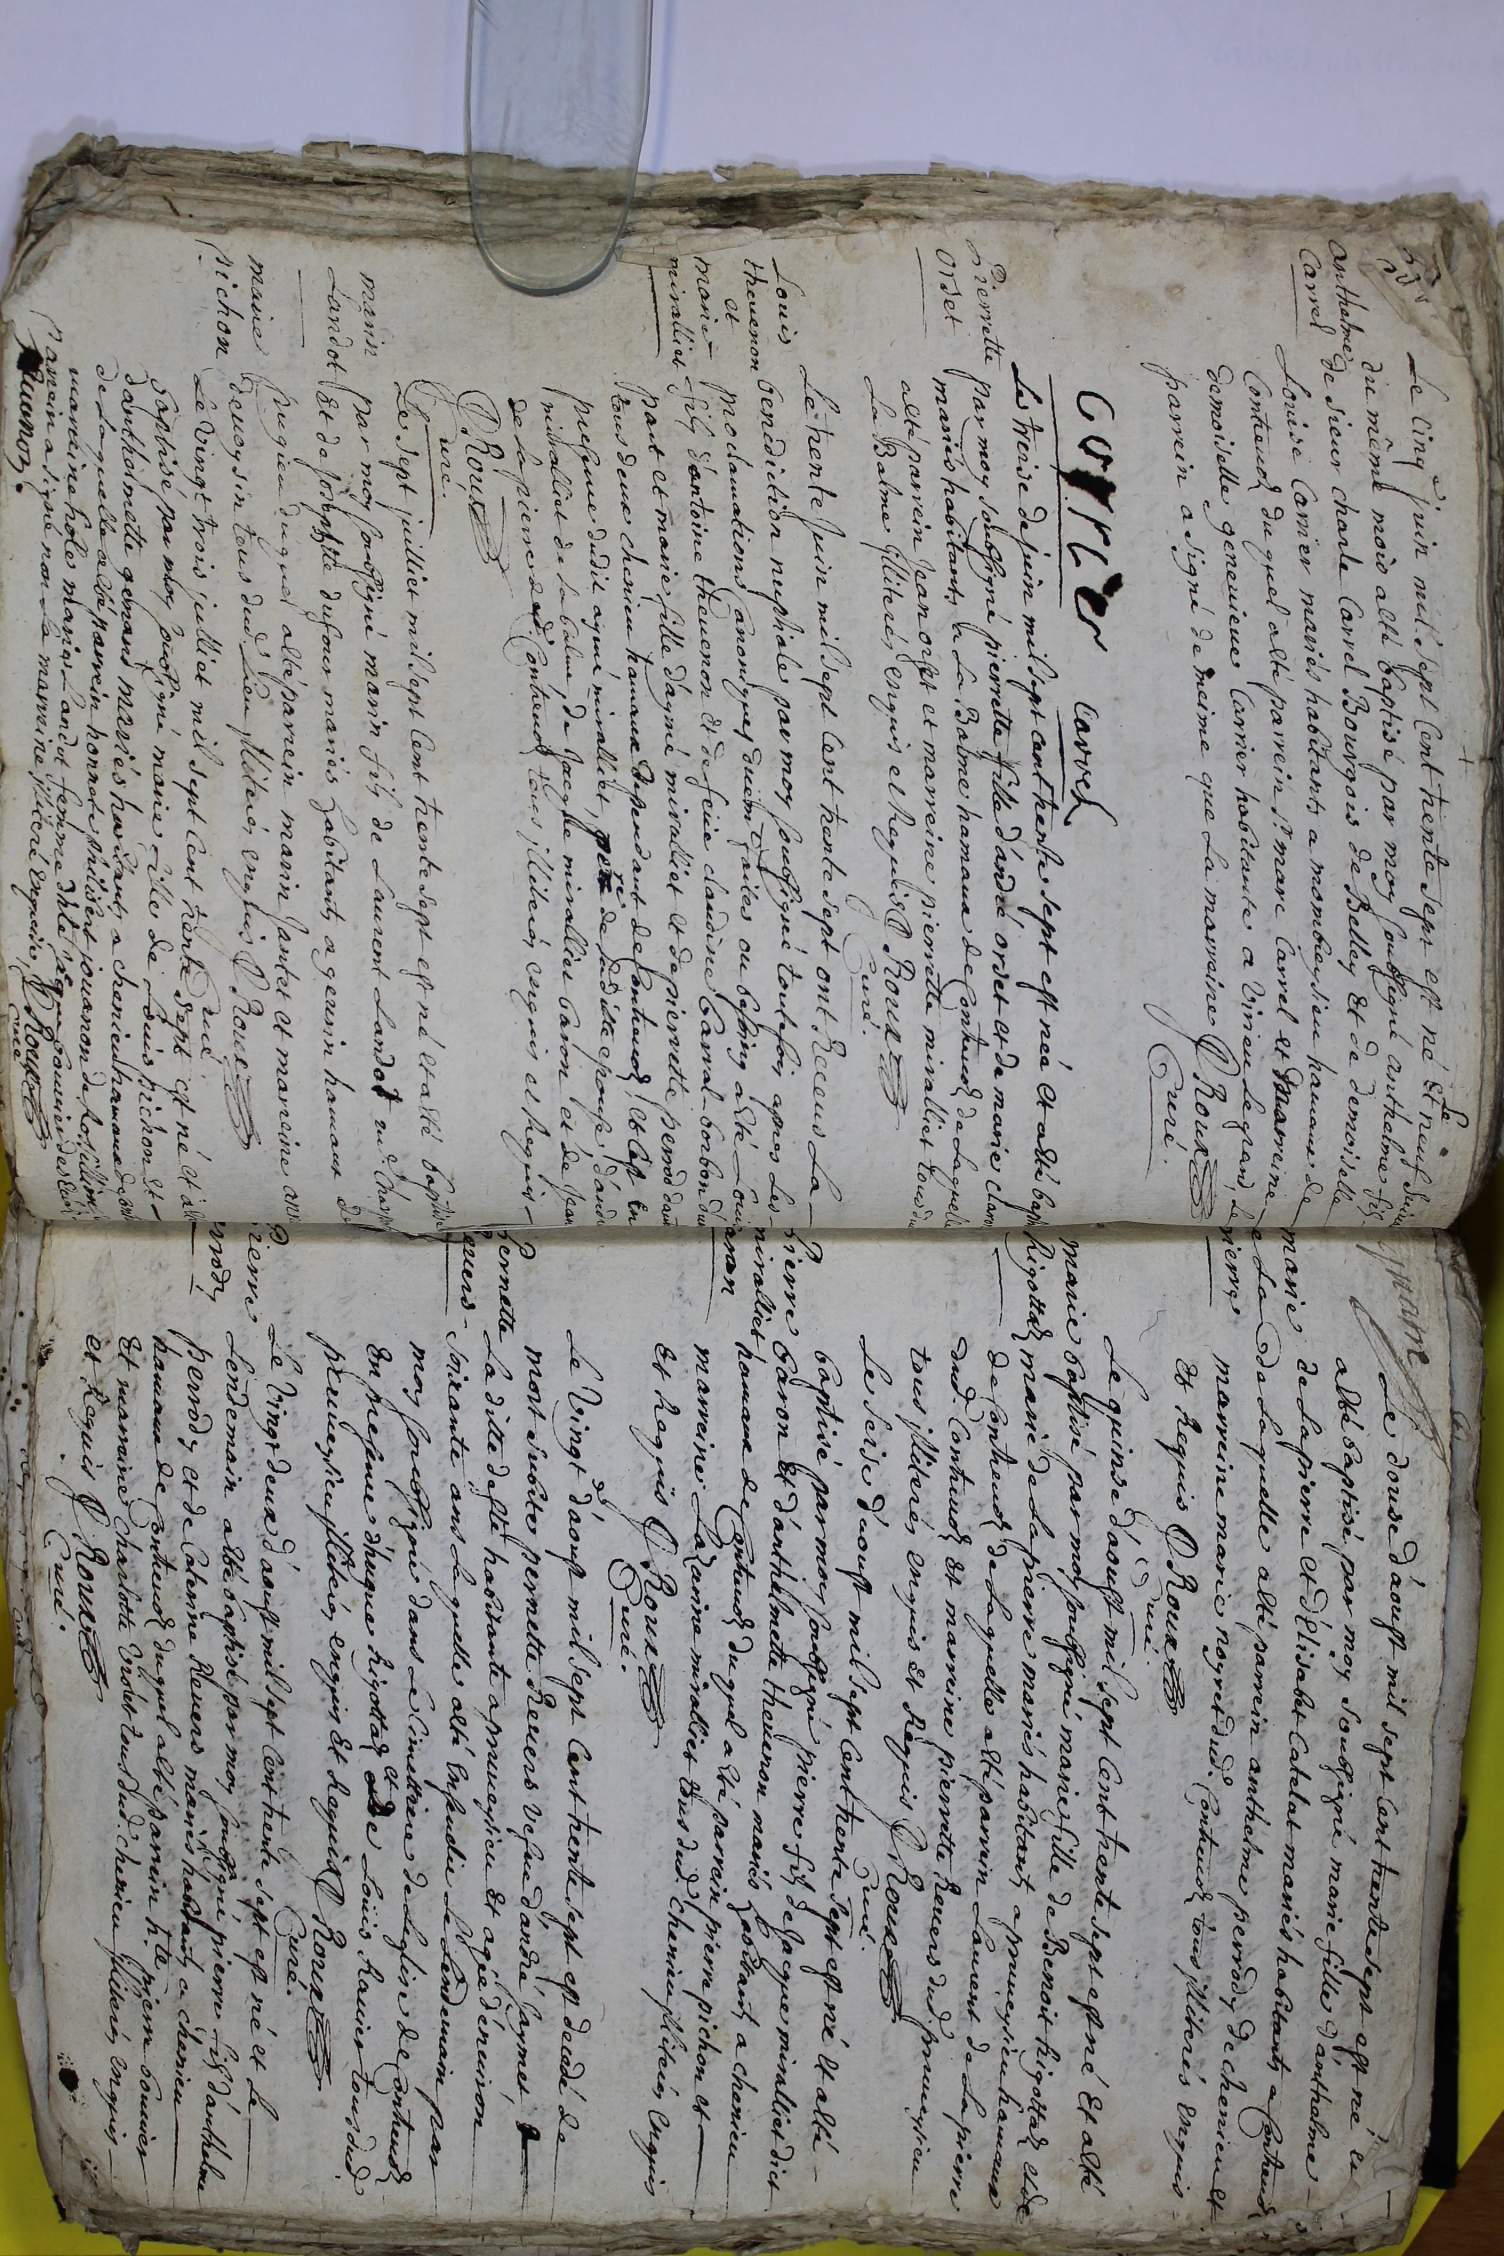 Anthelme
Carrel
Le cinq.e juin mil sept cent trente sept est né et le neuf
du même mois a eté baptisé par moy soussigné anthelme fils
de sieur charle Carrel Bourgois de Belley et de demoiselle
Louise Carrier mariés habitants a mombeysieu hamaux de
Contreuoz du quel a eté parrein sr. marc Carrel et Marreine
demoiselle geneuieue Carrier habitante a Virieu le grand, le
parrein a signé de meime que la marreine P Roux
Curé.
Carrier Carrel
Pierrette
ordet
Le treise de juin mil sept cent trente sept est neé et a eté
par moy soussigné pierrette fille d'andré ordet et de marie
mariés habitants a La Balme hamaux de Contreuoz de laquelle
a eté parrein jean ordet et marreine pierrette miralliet tous du
La Balme jlliterés enquis et Requis P Roux
Curé.
Louis
theuenon
et
marie
miralliet
Le trente juin mil sept cent trente sept ont Receus La
benediction nuptiale par moy soussigné toutefois apres les
proclamations Canoniques duement faites ou besoing a eté Louis
fils d'antoine theuenon et de feüe claudine Carral-borbon d'une
part et marie fille d'aymé miralliet et de pierrette perrod d'autre
tous deux chenieu hamaux dependant de Contreuoz, et c'est en
presence dudit aymé miralliet, pere de ladite epouse, d'andré
miralliet de la balme, de Jacque miralliet baron et de jean
de lapierre de Contreuoz tous jlliterés enquis et Requis
P Roux
Curé.
marin
Landot
Le sept juilliet mil sept cent trente sept est né et a eté baptisé
par moy soussigné marin fils de Laurent Landot
Et de Josephte dufour mariés habitants a geuin hamaux de
pugieu duquel a eté parrein marin Jantet et marreine
deuoysin tous dud. Lieu jlliterés enquis P Roux
Curé
marie
pichon
Le Vingt trois juilliet mil sept cent trente sept est né et a eté
Baptisé par moy soussigné marie fille de Louis pichon et
d'anthelmette gonard mariés habitants a chenieu hamaux de
de laquelle a eté parrein honnete philibert jouanon de Rossillion
marreine hote marie Landot femme d'hte jacque bouuier
parrein a signé non La marreine jlliteré enquise, P Roux
Curé
Juenoz.
marie
pierre
Le douse d'aoust mil sept cent trente sept est né et
a eté baptisé par moy soussigné marie fille d'anthelme
de Lapierre et d'Elisabet Catelat mariés habitants a Contreuoz
de laquelle a eté parrein anthelme perrody de chenieu et
marreine marie nogret dud. Contreuoz tous jlliterés enquis
et Requis P Roux
Curé.
marie
Rigottaz
Le quinse d'aoust mil sept cent trente sept est né et a eté
baptisé par moy soussigné marie fille de Benoit Rigottaz et de
marie de Lapierre mariés habitants a prueysieu hamaux
de Contreuoz de laquelle a eté parrein Laurent de Lapierre
dud. Contreuoz et marreine pierrette Reuers dud. prueysieu
tous jlliterés enquis et Requis P Roux
Curé.
Pierre
miralliet
baron
Le seise d'aoust mil sept cent trente sept est né et a eté
baptisé par moy soussigné pierre fils de Jacque miralliet dict
Baron et d'anthelmette theuenon mariés habitants a chenieu
hamaux de Contreuoz du quel a eté parrein pierre pichon et
marreine Lazarine miralliet tous dud. chenieu jlliterés Enquis
et Requis P Roux
Curé.
Pernette
Reuers
Le Vingt d'aoust mil sept cent trente sept est decedé de
mort subite pernette Reuers Vefue d'andré Caynet
La ditte defte habitante a prueysieu et agée d'enuiron
soixante ans laquelle a eté Enseuelie le Lendemain par
moy soussigné dans le Cimettiere de l'eglise de Contreuoz
En presence d'hugue Rigottaz et de Louis Rauier tous dud.
prueysieu jlliterés enquis et Requis P Roux
Curé.
Pierre
perrody
Le Vingt deux d'aoust mil sept cent trente sept est né et le
Lendemain a eté baptisé par moy soussigné pierre fils d'anthelme
perrody et de Caterine Reuers mariés habitants a chenieu
hamaux de Contreuoz duquel a eté parrein h.te pierre bouuier
et marreine charlotte Ordet tous dud. chenieu jlliterés enquis
et Requis P Roux
Curé.